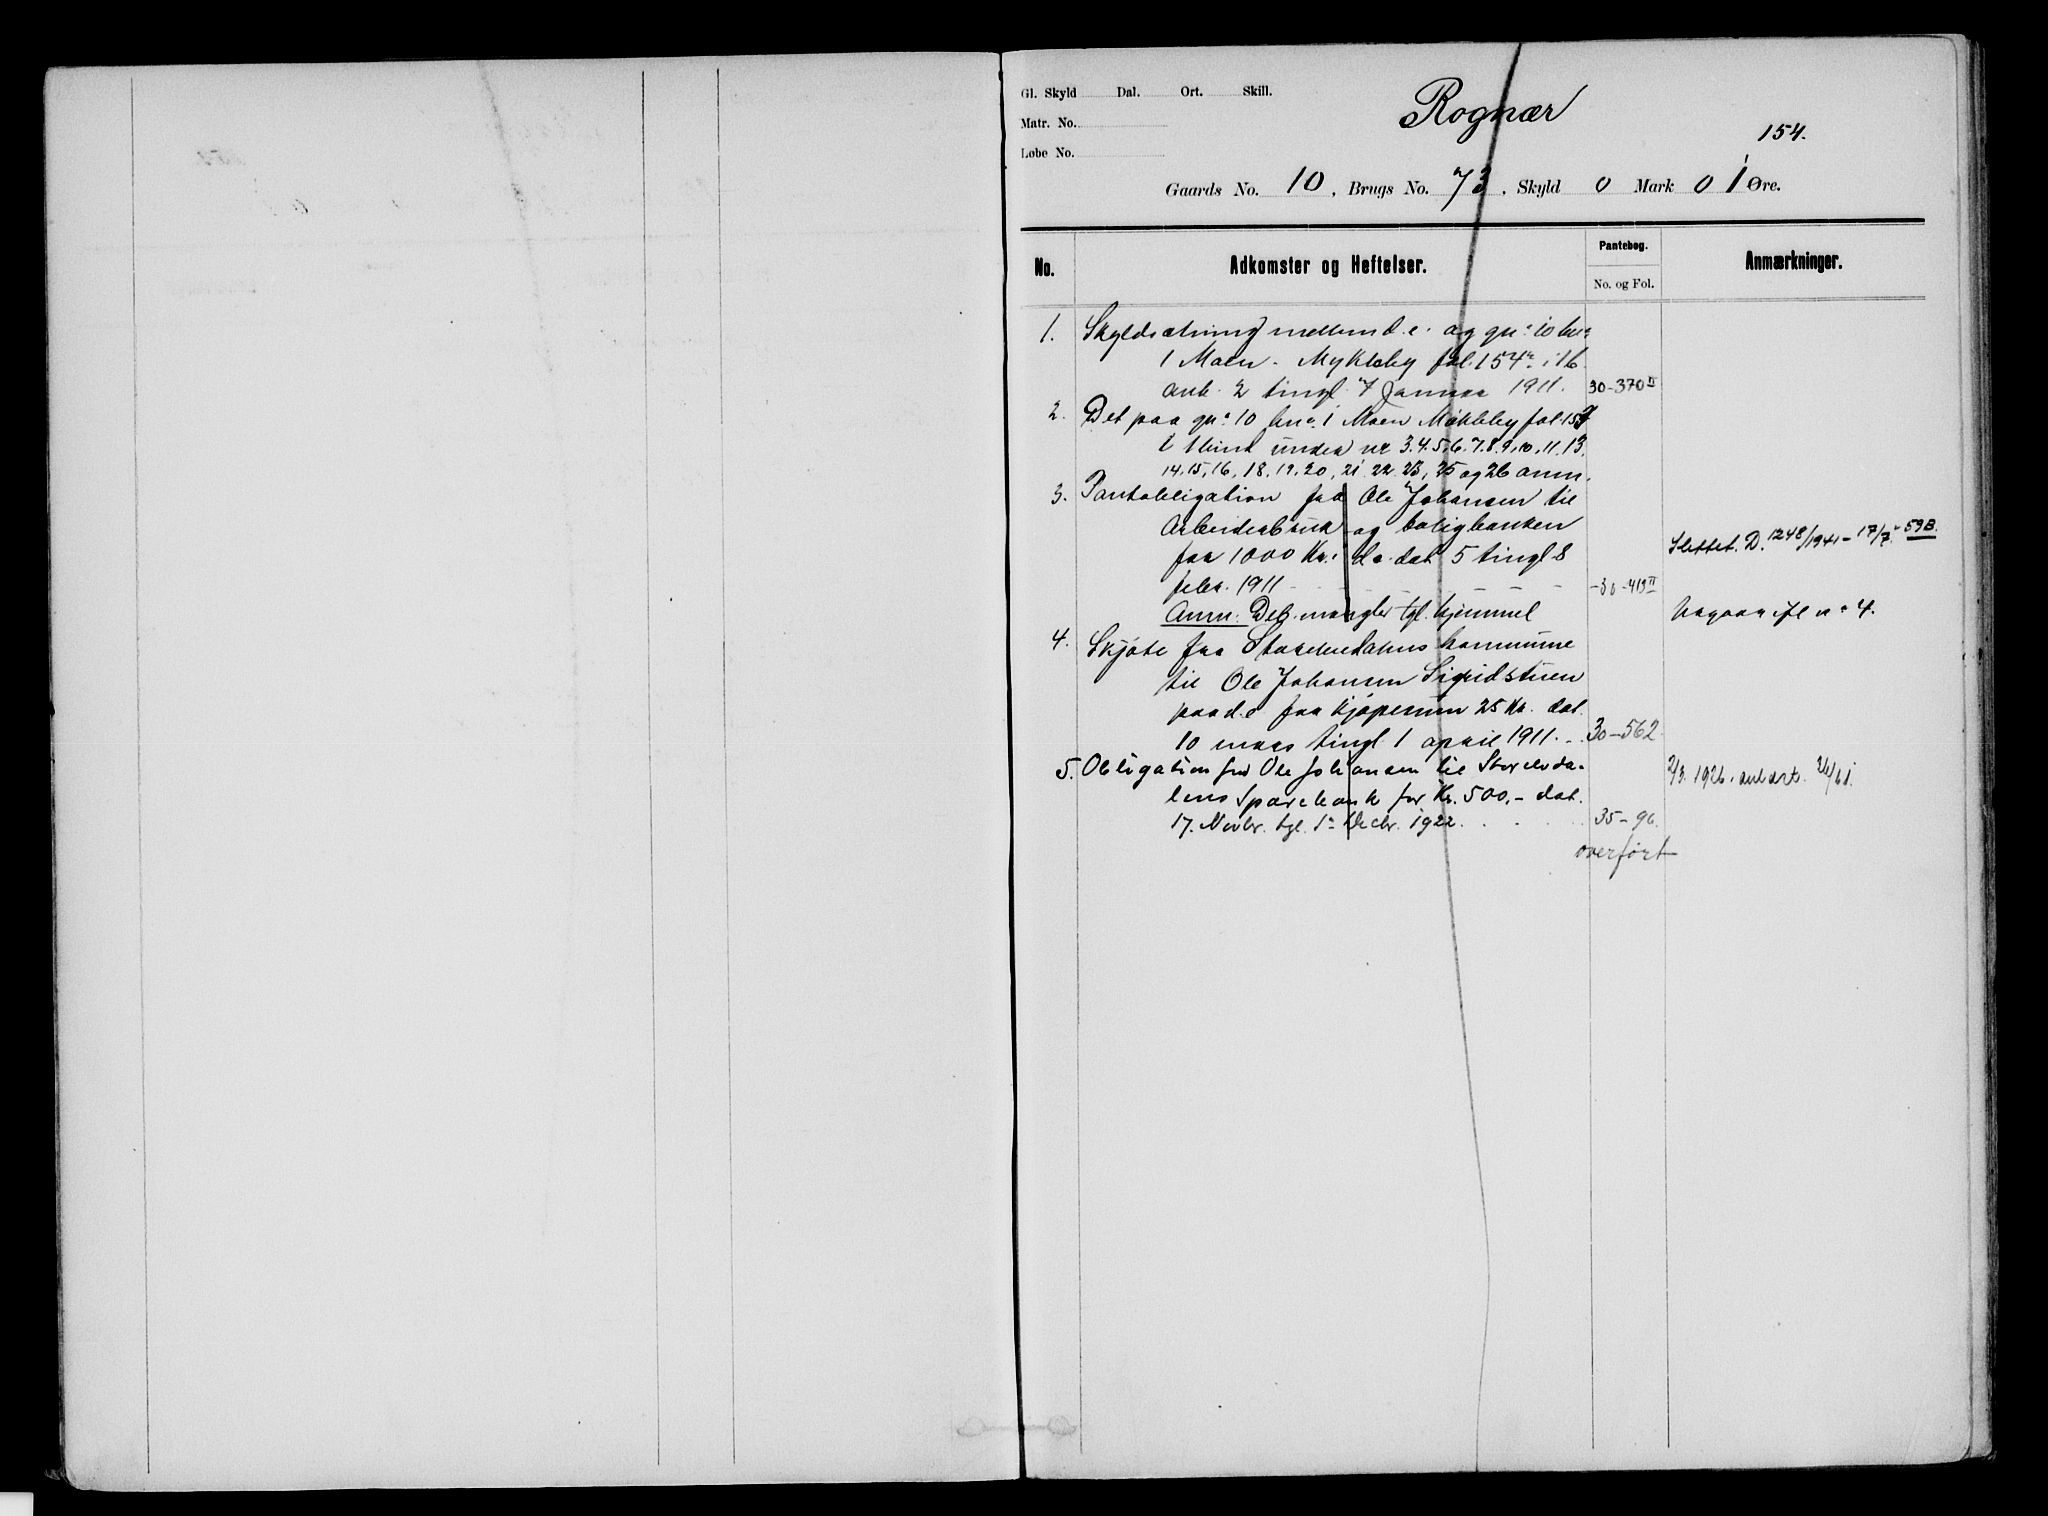 Gl. Skyld Dal. Ort. Skill.
Matr. No.
Løbe No.
Rognær
154.
Gaards No. 10, Brugs No. 73, Skyld 0 Mark 01 Øre.
No. Adkomster og Heftelser. Pantebog. No. og Fol. Anmærkninger.
1. Skyldsætning mellem d.e. og gn. 10 bn.
1 Moen Mykleby fol. 154
anb. 2 tingl. 7 Januar 1911. 30-370 II
2. Det paa gn. 10 bn. 1 Moen Mykleby fol. 154
under nr 3.4.5.6.7.8.9.10.11.13.
14.15.16.18.19.20, 21 22 23, 25 og 26 anm.
3. Pantobligation fra Ole Johansen til
Arbeiderbruk og boligbanken
for 1000 Kr. i d.e. dat 5 tingl 8
febr. 1911 - 30-413 II
Slettet. D. 1248/1941 - 17/7. - 59B.
Anm: Deb. mangler tgl. hjemmel
4.
4. Skjøte fra Storelvedalens kommune
til Ole Johansen Sigridstuen
paa d.e for kjøpesum 25 Kr. dat.
10 mars tingl. 1 april 1911. - 30-562.
5. Obligation fra Ole Johansen til Storelvda-
lens Sparebank for Kr. 500,- dat.
17. Novbr. tgl. 1 Decbr. 1922. 35-96.
2/3. 1926
overført